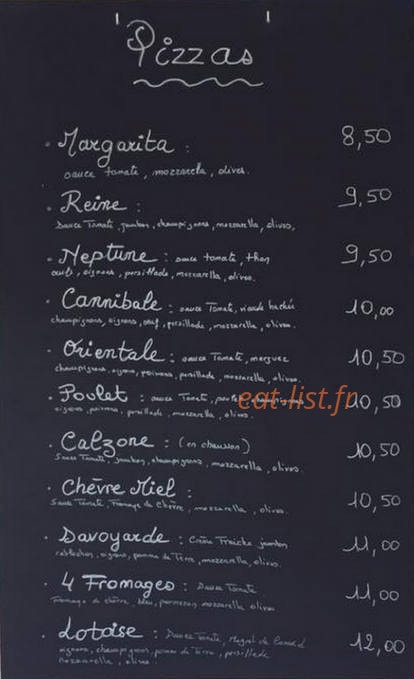 Pizzas
· Margarita : 8,50
sauce tomate, mozzarella, olives.
· Reine : 9,50
Sauce Tomate, jambon, champignons, mozzarella, olives,
· Neptune : sauce tomate, thon 9,50
œufs, oignons, persillade, mozzarella, olives.
· Cannibale : sauce Tomate, viande hachée 10,00
champignons, oignons, œuf, persillade, mozzarella, olives.
· Orientale : sauce Tomate, merguez 10,50
champignons, oignons, poivrons, persillade, mozzarella, olives.
· Poulet : sauce Tomate, poulet, champignons 10,50
eat-list.fr
oignons, poivrons, persillade, mozzarella, olives.
· Calzone : (en chausson) 10,50
Sauce Tomate, jambon, champignons, mozzarella, olives.
· Chèvre Miel : 10,50
Sauce Tomate, Fromage de chèvre, mozzarella, olives.
· Savoyarde : Crème Fraîche jambon 11,00
reblochon, oignons, pomme de Terre, mozzarella, olives.
· 4 Fromages : Sauce Tomate 11,00
Fromage de chèvre, bleu, parmesan mozzarella olives
· Lotoise : Sauce Tomate, Magret de Canard 12,00
oignons, champignons, pomme de Terre, persillade
mozzarella, olives.